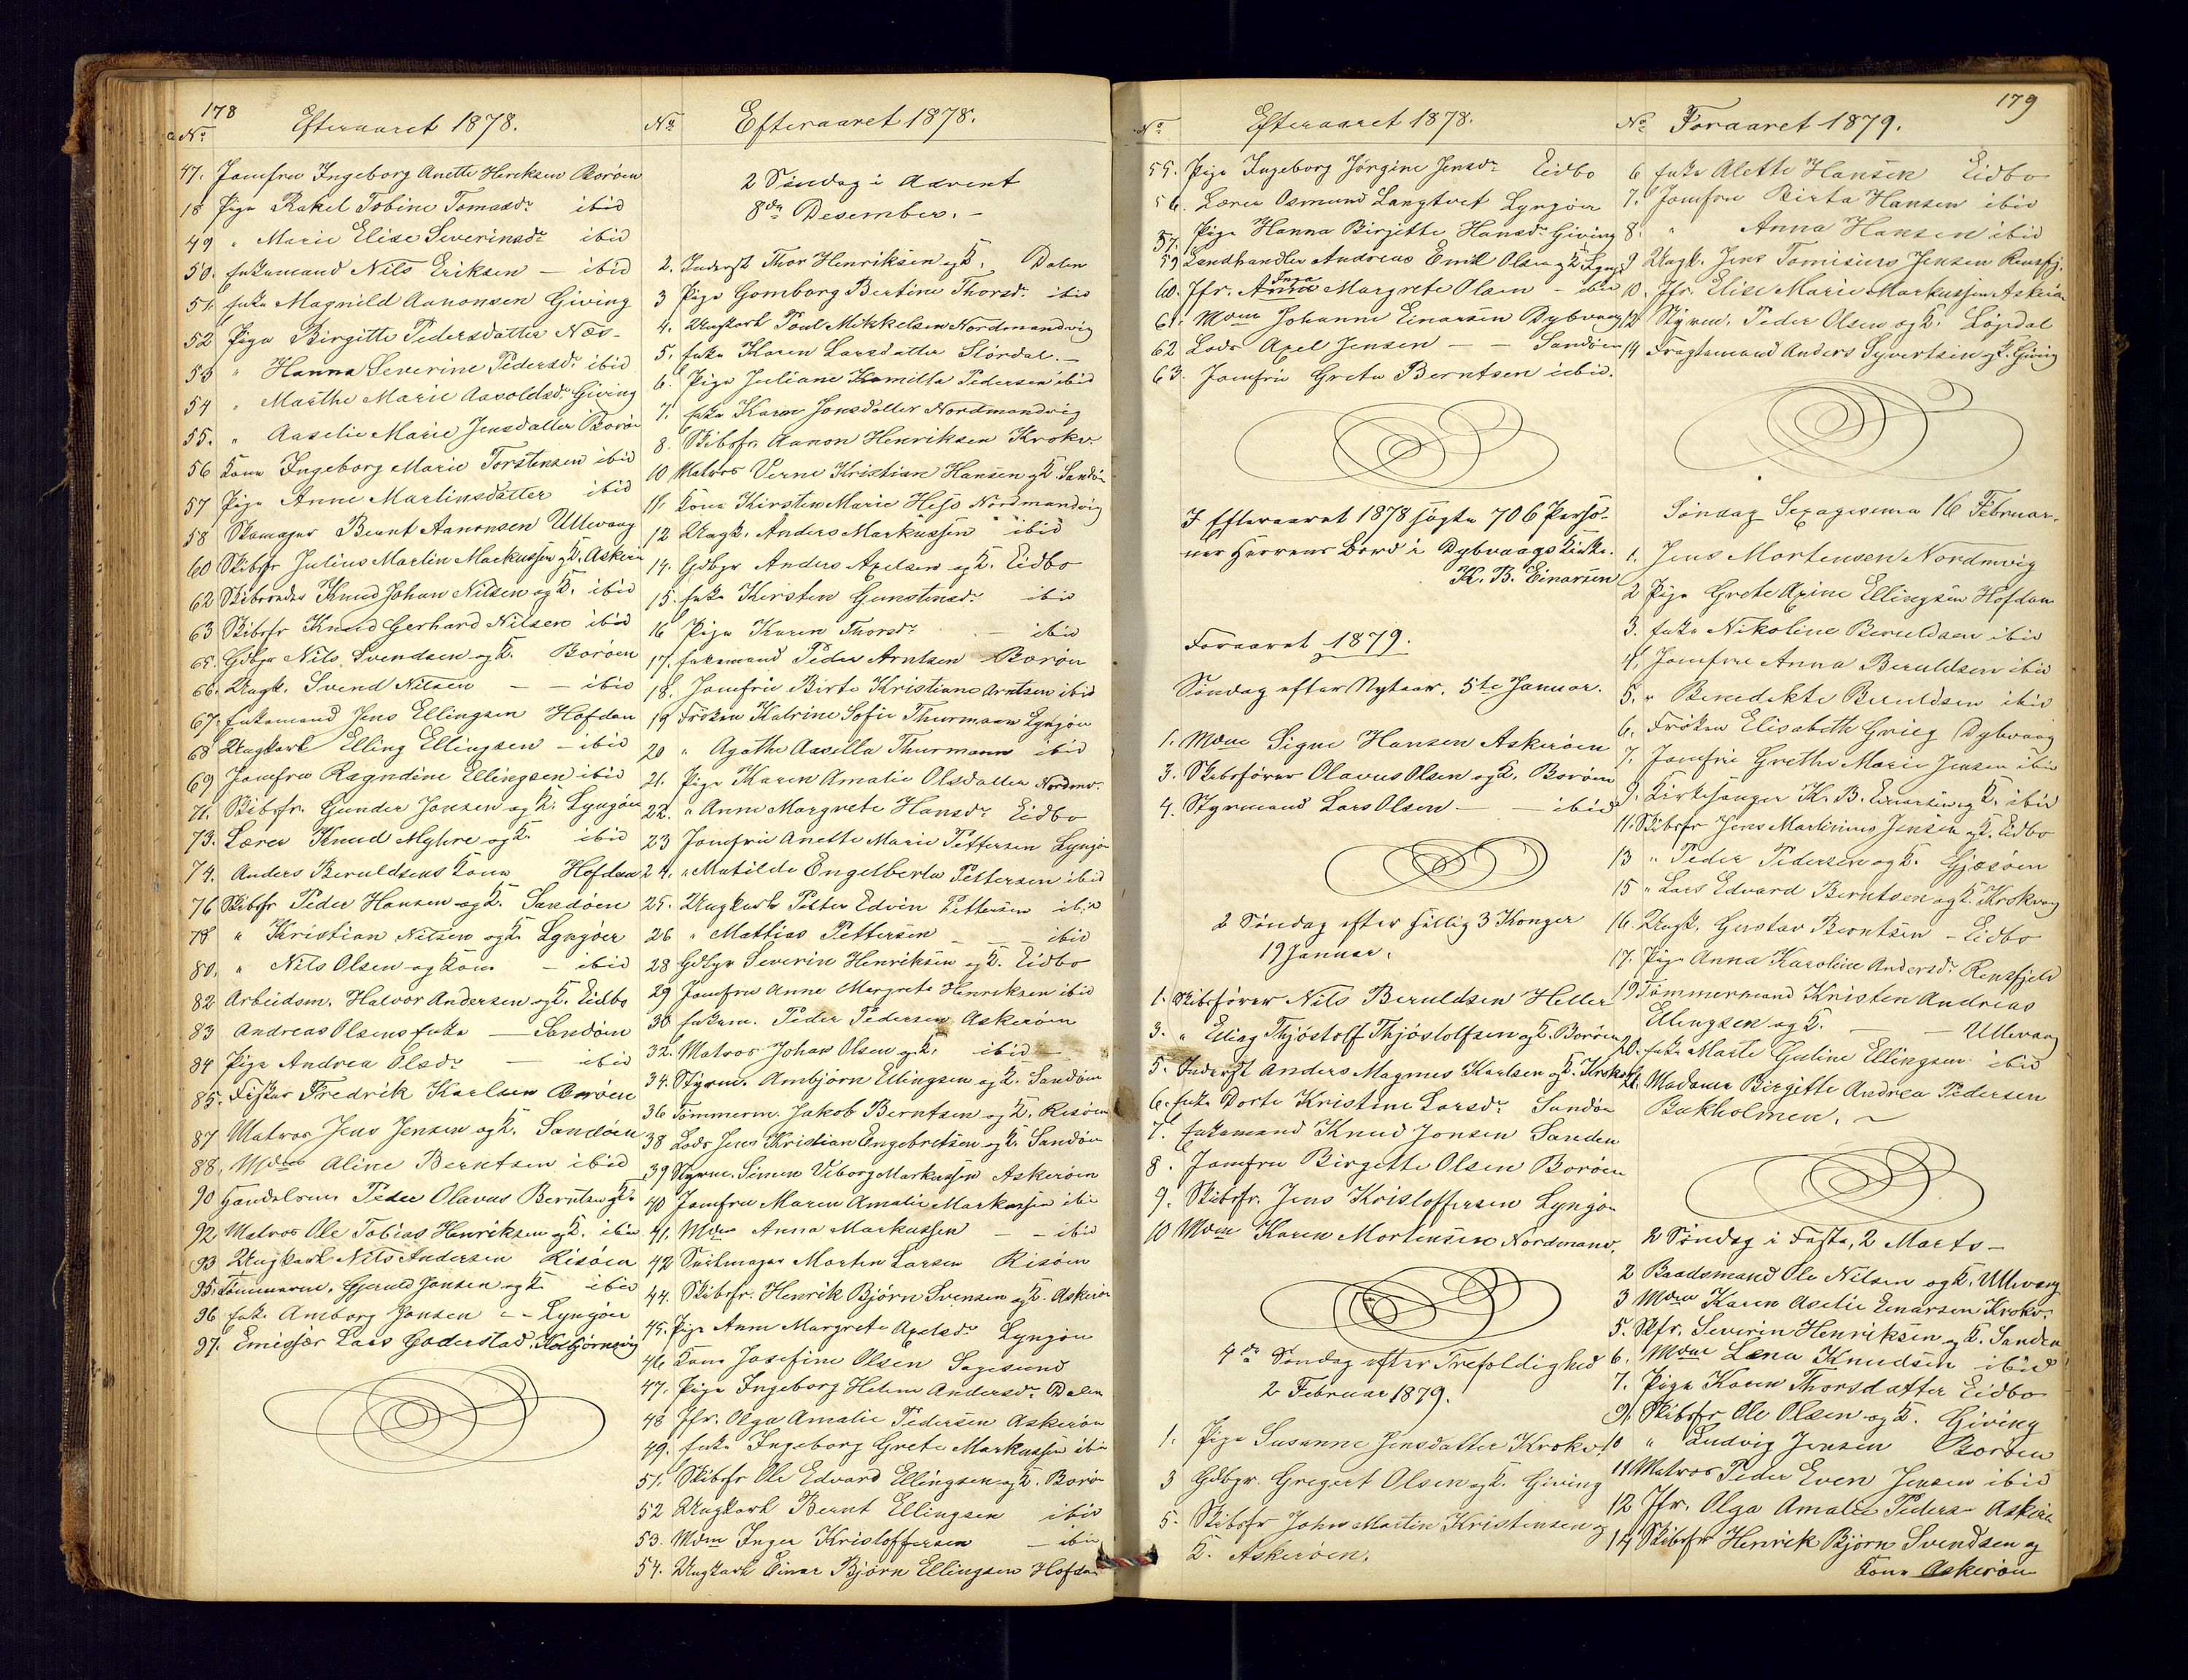 178
No
Efteraaret 1878.
47. Jomfru Ingeborg Anette Henriksen Borøen
18 Pige Rakel Tobine Tomasdr ibid
49 " Marie Elise Severinsdr ibid
50. Enkemand Nils Eriksen — ibid
51. Enke Magnild Aanonsen Giving
52 Pige Birgitte Pedersdatter Næs-
53 " Hanna Severine Pedersdr ibid
54 " Marthe Marie Aasoldsdr Giving
55. " Aaselie Marie Jensdatter Borøe
56 Kone Ingeborg Marie Torstensen ibid
57 Pige Anne Martinsdatter ibid
58 Skomager Bernt Aanonsen Ullevaag
60 Skibsfr Julius Martin Markussen og K. Askerøe
62 Skibsreder Knud Johan Nilsen og K. ibid
63 Skibsfr Knud Gerhard Nilsen ibid
65. Gdbgr Nils Svendsen og K. Borøen
66. Ungk. Svend Nilsen — — ibid
67. Enkemand Jens Ellingsen Hofdan
68 Ungkarl Elling Ellingsen — ibid
69 Jomfru Ragndine Ellingsen ibid
71. Skibsfr. Gunder Jonsen og K. Lyngøer
73. Lærer Knud Myhre og K. ibid
74. Anders Beruldsens Kone Hofdan
76 Skibsfr Peder Hansen og K. Sandøen
78 " Kristian Nilsen og K. Lyngøer
80. " Nils Olsen og Kone — ibid
82 Arbeidsm. Halvor Andersen og K. Eidbo
83 Andreas Olsens Enke — Sandøen
84 Pige Andrea Olsdr — ibid
85. Fisker Fredrik Karlsen Borøen
87 Matros Jens Jensen og K. Sandøen
88. Mdme Aline Berntsen ibid
90 Handelsm. Peder Olavus Berntsen og K.
92 Matros Ole Tobias Henriksen og K. ibid
93 Ungkarl Nils Andersen Risøen
95. Tømmerm. Gjeruld Jansen og K. ibid
96 Enke Amborg Jansen — Lyngøer
97. Emisær Lars Gaderstad. Kolbjørnsvig
No
Efteraaret 1878.
2 Søndag i Advent
8de Desember. –
2. Inderst Thor Henriksen og K. Dalen
3 Pige Gomborg Bertine Thorsdr. ibid
4. Ungkarl Poul Mikkelsen Nordmandvig
5. Enke Karen Larsdatter Stördal. –
6. Pige Juliane Kamilla Pedersen ibid
7. Enke Karen Jonsdatter Nordmandvig
8. Skibsfr. Aanon Henriksen Krokv.
10 Matros Verne Kristian Hansen og K. Sandøen
11. Kone Kirsten Marie Hess Nordmandvig
12 Ungk. Anders Markussen ibid
14. Gdbgr Anders Axelsen og K. Eidbo
15. Enke Kirsten Gunstensdr. ibid
16 Pige Karen Thorsdr. — ibid
17. Enkemand Peder Arntsen Borøen
18. Jomfru Birte Kristiane Arntsen ibid
19 Frøken Katrine Sofie Thurmann Lyngøer
20 " Agathe Aasella Thurmann ibid
21. Pige Karen Amalie Olsdatter Nordmv.
22. " Anne Margrete Hansdr Eidbo
23 Jomfru Anette Marie Pettersen Lyngør
24. " Matilde Engelberta Pettersen ibid
25. Ungkarl Petter Edvin Pettersen ibid
26 " Mathias Pettersen — — ibid
28 Gdbgr Severin Henriksen og K. Eidbo
29 Jomfru Anne Margrete Henriksen ibid
30 Enkem. Peder Pedersen Askerøen
32. Matros Johan Olsen og K. ibid —
34. Styrm. Ambjørn Ellingsen og K. Sandøen
36 Tømmerm. Jakob Berntsen og K. Risøen
38 Lods Jens Kristian Engebretsen og K. Sandøen
39 Styrm. Simen Viborg Markussen Askerøen
40 Jomfru Maren Amalie Markussen ibid
41. Mdme Anna Markussen — — ibid
42 Seilmager Morten Larsen Risøen
44. Skibsfr. Henrik Bjørn Svensen og K. Askerøe
45. Pige Anne Margrete Axelsdr Lyngøer
46. Kone Josefine Olsen Sagesund
47. Pige Ingeborg Helene Andersdr. Dalen
48 Jfr. Olga Amalie Pedersen Askerøen
49. Enke Ingeborg Grete Markussen ibid
51. Skibsfr Ole Edvard Ellingsen og K. Borøe
52 Ungkarl Bernt Ellingsen ibid
53. Mdme Inger Kristoffersen — ibid
54. Ungkarl Einar Bjørn Ellingsen Hofdan
No
Efteraaret 1878.
55. Pige Ingeborg Jörgine Jensdr Eidbo
56. Lærer Osmund Langtvet Lyngøer
57. Pige Hanna Birgitte Hansdr. Giving
59 Landhandler Andreas Emil Olsen og K. Lyngø
60. Jfr. Anna Inga Margrete Olsen — ibid
61. Mdme Johanne Einarsen Dybvaag
62 Lods Axel Jensen — — Sandøen
63. Jomfru Grete Berntsen ibid.
I Efteraaret 1878 søgte 706 Perso-
ner Herrens Bord i Dybvaags Kirke.
K. B. Einarsen
Foraaret 1879.
Søndag efter Nytaar, 5te Januar.
1. Mdme Signe Hansen Askerøen
3. Skibsfører Olavus Olsen og K. Borøen
4. Styrmand Lars Olsen — — ibid
2 Søndag efter Hellig 3 Konger
19 Januar.
1. Skibsfører Nils Beruldsen Heller
3. " Elieg Thjøstolf Thjøstolfsen og K. Borøen
5. Inderst Anders Magnus Karlsen og K. Krokv.
6. Enke Dorte Kristine Larsdr Sandøe
7. Enkemand Knud Jonsen Sanden
8. Jomfru Birgitte Olsen Borøen
9. Skibsfr. Jens Kristoffersen Lyngøer
10 Mdme Karen Mortensen Nordmanv.
4de Søndag efter Trefoldighed
2 Februar 1879.
1. Pige Susanne Jensdatter Krokv.
3 Gdbgr. Gregert Olsen og K. Giving
5. Skibsfr John Martin Kristensen og
K. Askerøen.
179
No
Foraaret 1879.
6 Enke Alette Hansen Eidbo
7. Jomfru Birta Hansen ibid
8. " Anna Hansen ibid
9 Ungk. Jens Tomisius Jensen Rensfj.
10. Jfr. Elise Marie Markussen Askerøe
12 Styrm. Peder Olsen og K. Løgdal
14 Fragtemand Anders Syvertsen og K. Giving
Søndag Sexagesima 16 Februar.
1. Jens Mortensen Nordmvig
2 Pige Grete Axine Ellingsen Hofdan
3. Enke Nikoline Beruldsen ibid
4. Jomfru Anna Beruldsen ibid
5. " Benedikte Beruldsen ibid
6. Frøken Elisabeth Grieg Dybvaag
7. Jomfru Grethe Marie Jensen ibid
9. Kirkesanger K. B. Einarsen og K. ibid
11. Skibsfr Jens Martinius Jensen og K. Eidbo
13 " Peder Pedersen og K. Gjæsøen
15 " Lars Edvard Berntsen og K. Krokvag
16. Ungk. Gustav Berntsen — Eidbo
17. Pige Anna Karoline Andersdr. Rensfjeld
19 Tømmermand Kristen Andreas
Ellingsen og K. — — Ullevaag
20. Enke Marte Guline Ellingsen ibid
21. Madame Birgitte Andrea Pedersen
Bakholmen. ~
2 Søndag i Faste, 2 Marts —
2 Baadsmand Ole Nilsen og K. Ullevaag
3 Mdme Karen Aselie Einarsen Krokv.
5. Skfr. Severin Henriksen og K. Sanden
6. Mdme Lena Knudsen ibid
7. Pige Karen Thorsdatter Eidbo
9. Skibsfr Ole Olsen og K. Giving
10 " Ludvig Jensen Borøen
11 Matros Peder Even Jensen ibid
12 Jfr. Olga Amalie Peders- Askerøe
14 Skibsfr Henrik Bjørn Svendsen og
Kone Askerøen